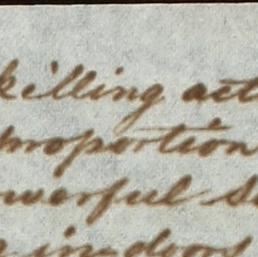 killing act
proportion
werful s
in-doors